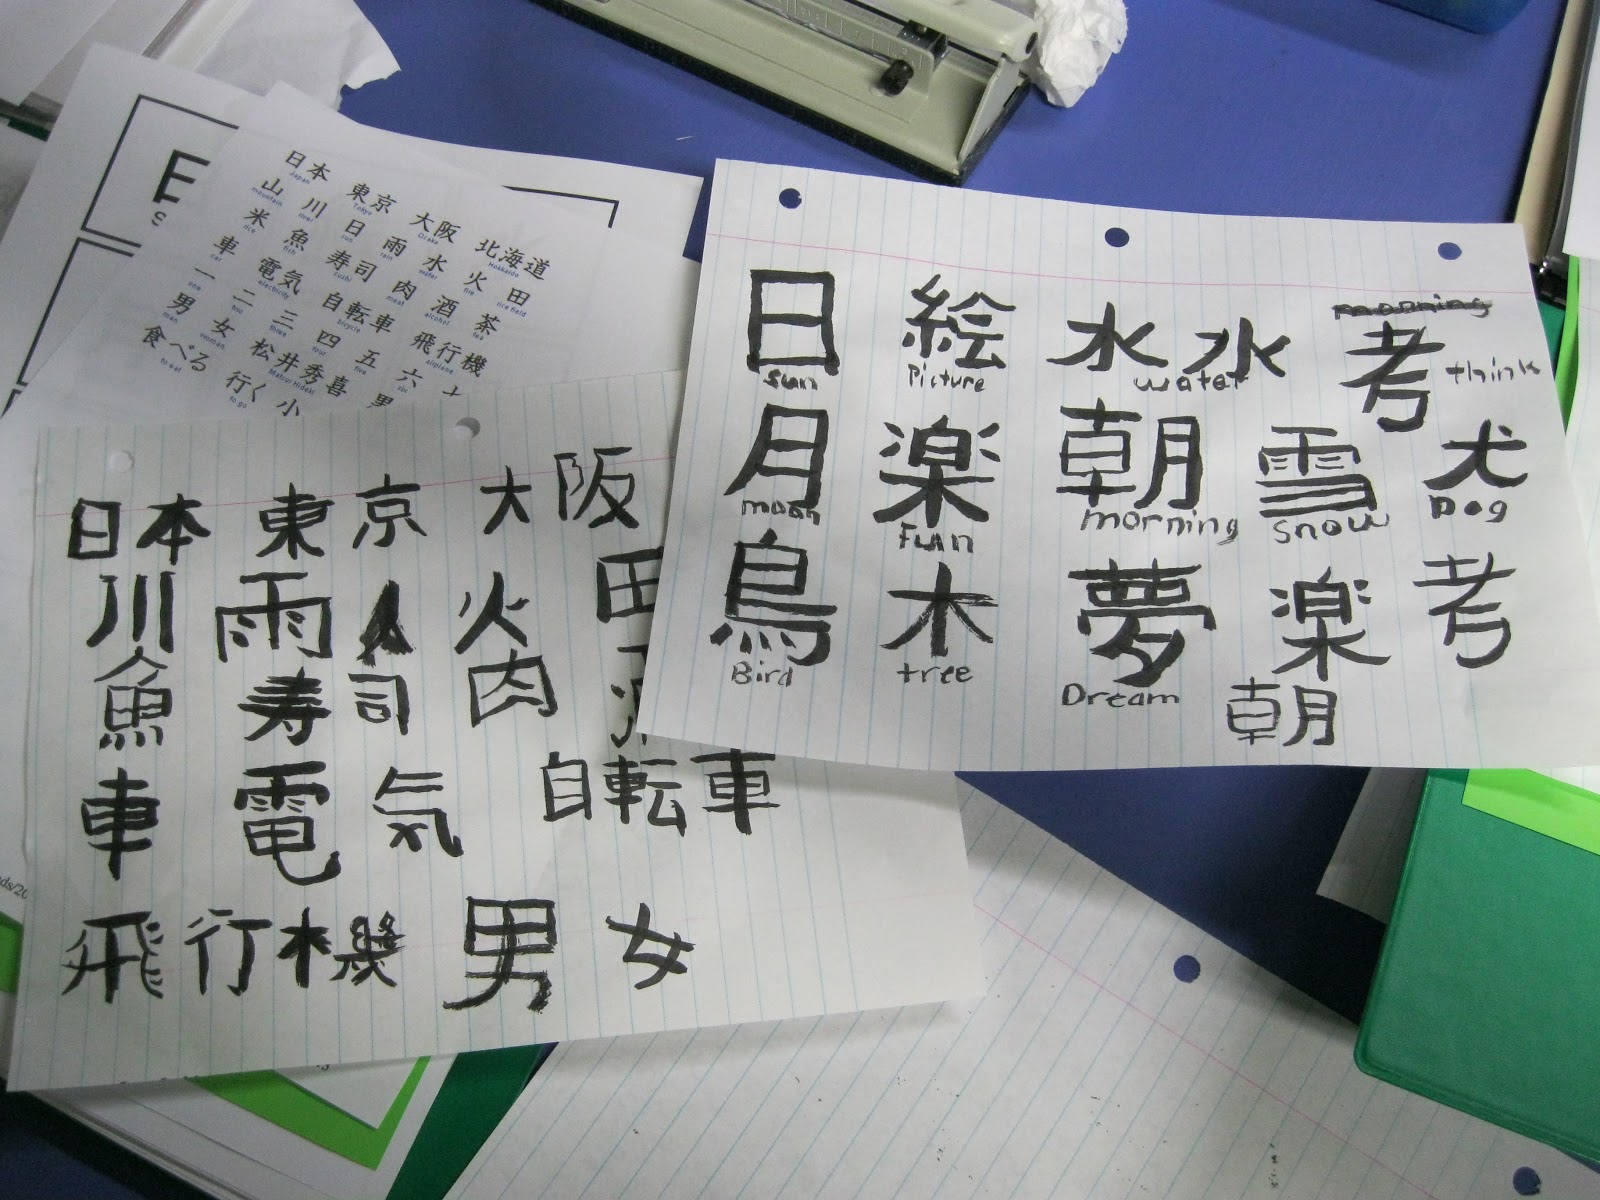 日本 東京 大阪 北海道
Japan Tokyo Osaka Hokkaido
山 川 日 雨 水 火 田
mountain river sun rain water fire rice field
米 魚 寿司 肉 酒 茶
rice fish sushi meat alcohol tea
車 電気 自転車 飛行機
car electricity bicycle airplane
一 二 三 四 五 六
one two three four five six
男 女 松井秀喜
man woman Matsui Hideki
食べる 行く 小
to eat to go
日本 東京 大阪
川 雨 火 田
魚 寿司 肉
車 電気 自転車
飛行機 男 女
日 絵 水 水 考
sun Picture water think
月 楽 朝 雪 犬
moon Fun morning snow Dog
鳥 木 夢 楽 考
Bird tree Dream
朝